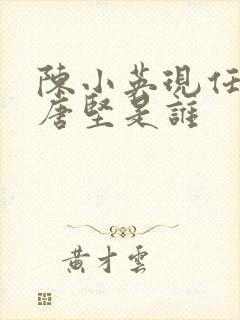 陳小英現任
唐堅是誰
黃才雲